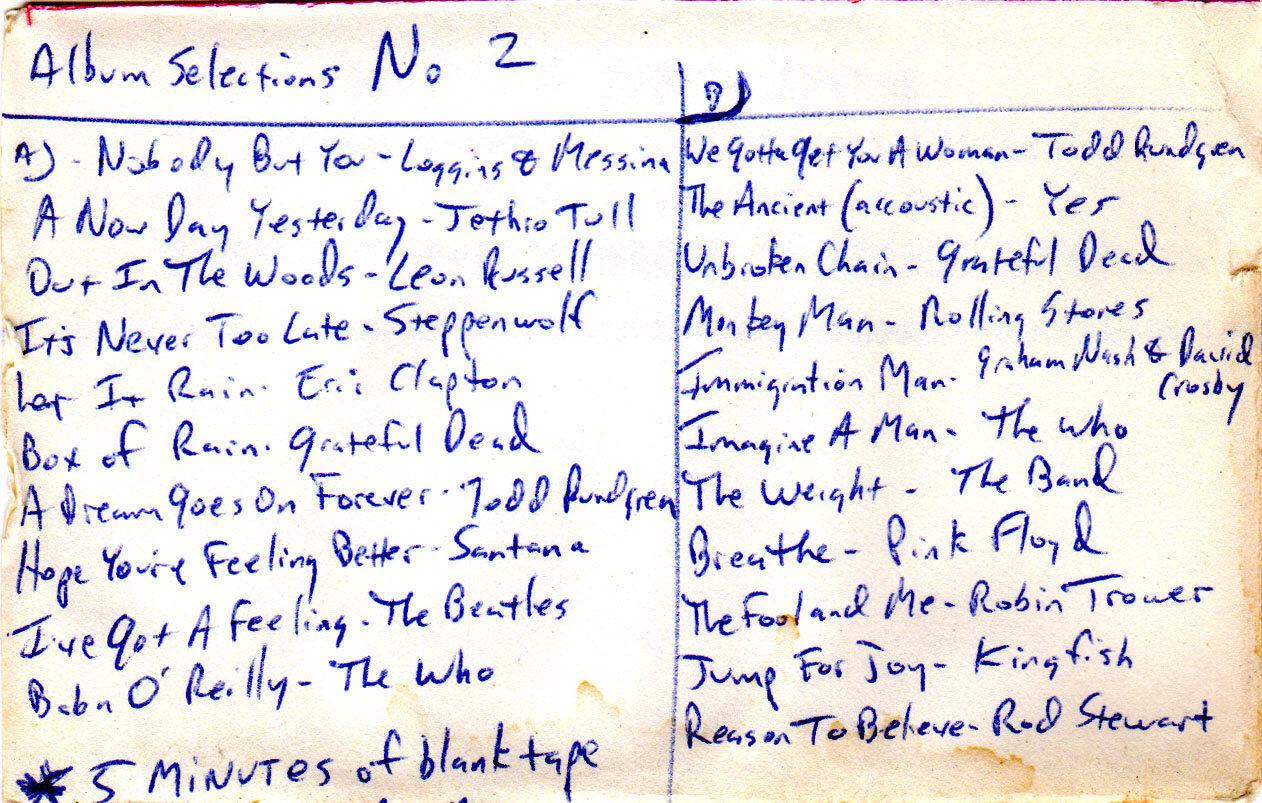 Album Selections No 2
A) - Nobody But You - Loggins & Messina
A New Day Yesterday - Jethro Tull
Out In The Woods - Leon Russell
It's Never Too Late - Steppenwolf
Let It Rain - Eric Clapton
Box of Rain - Grateful Dead
A Dream Goes On Forever - Todd Rundgren
Hope You're Feeling Better - Santana
I've Got A Feeling - The Beatles
Baba O'Reilly - The Who
* 5 MINUTES of blank tape
B)
We Gotta Get You A Woman - Todd Rundgren
The Ancient (accoustic) - Yes
Unbroken Chain - Grateful Dead
Monkey Man - Rolling Stones
Immigration Man - Graham Nash & David
Crosby
Imagine A Man - The Who
The Weight - The Band
Breathe - Pink Floyd
The Fool and Me - Robin Trower
Jump For Joy - Kingfish
Reason To Believe - Rod Stewart